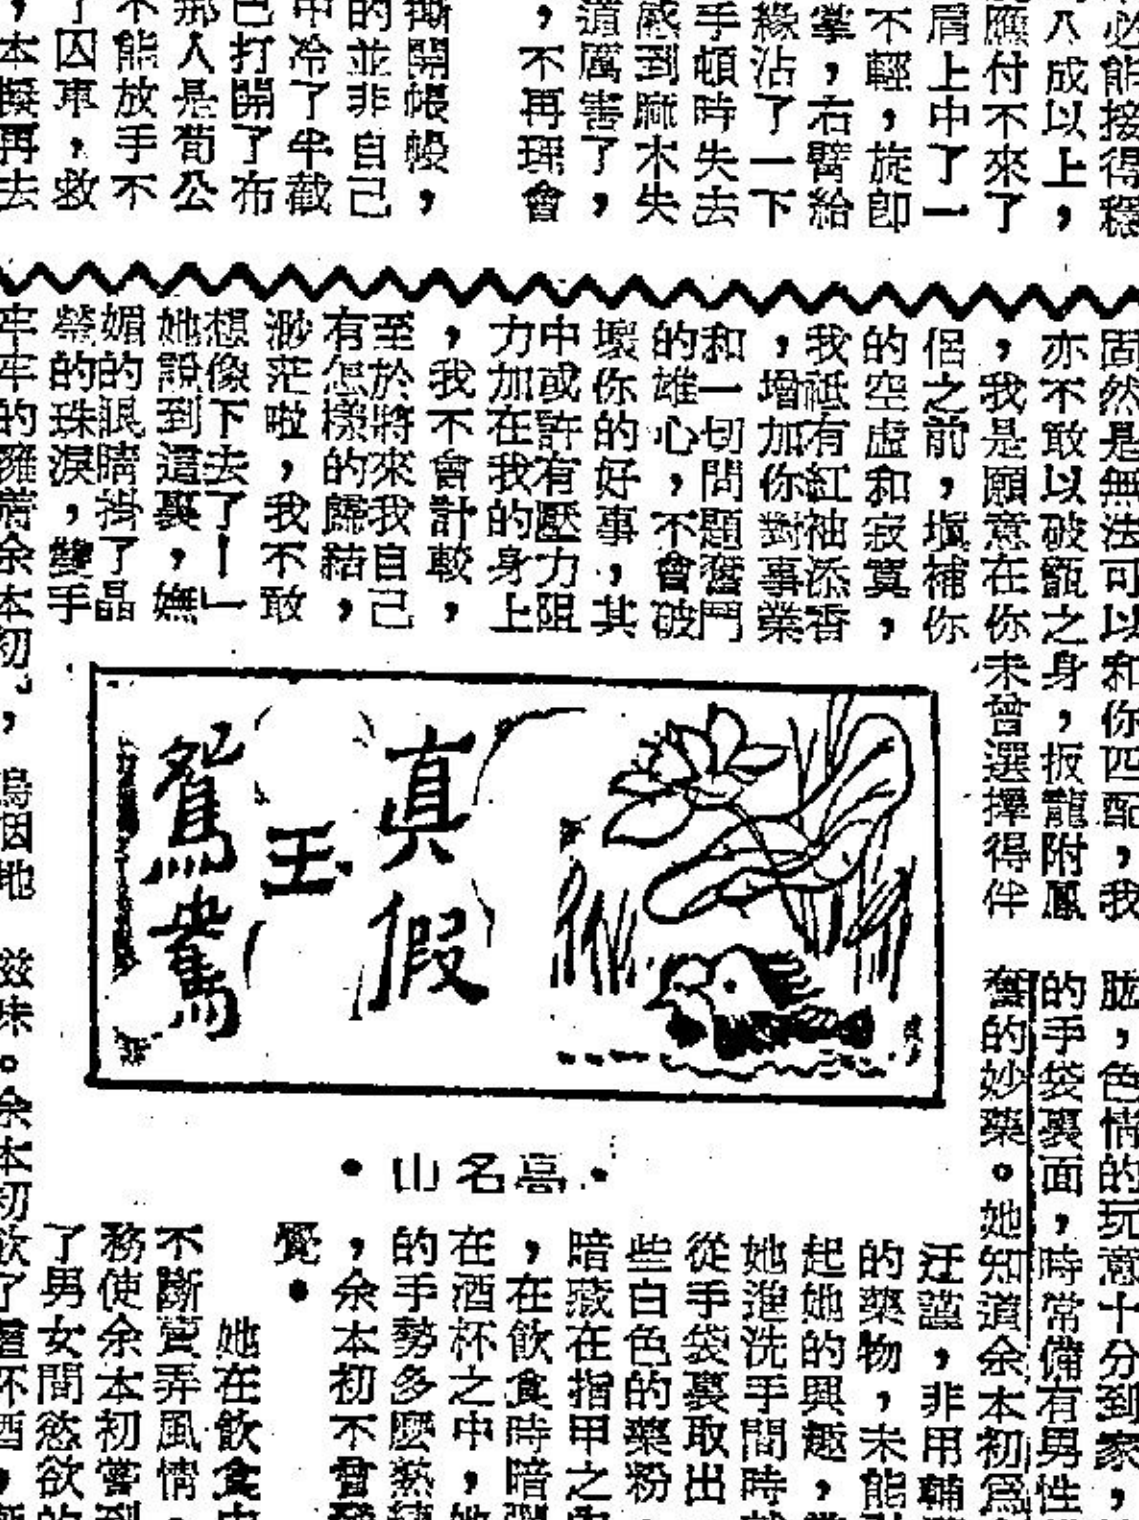 必能接得穩
八成以上，
應付不來了
肩上中了一
不輕，旋卽
掌，右臂給
緣沾了一下
手頓時失去
感到麻木失
道厲害了，
，不再理會
撕開帳幔，
的並非自己
中冷了半截
已打開了布
那人是荀公
不能放手不
了囚車，救
，本擬再去
固然是無法可以和你匹配，我
亦不敢以破甑之身，扳龍附鳳
，我是願意在你未曾選擇得伴
侶之前，塡補你
的空虛和寂寞，
我祗有紅袖添香
，增加你對事業
和一切問題奮鬥
的雄心，不會破
壞你的好事，其
中或許有壓力阻
力加在我的身上
，我不會計較，
至於將來我自己
有怎樣的歸結，
渺茫啦，我不敢
想像下去了！」
她說到這裏，嫵
媚的眼睛掛了晶
瑩的珠淚，雙手
牢牢的擁着余本初，
真假
王
鴛鴦
•喜名山•
，色情的玩意十分到家，
的手袋裏面，時常備有男性
奮的妙藥。她知道余本初爲
，非用輔
的藥物，未能
起她的興趣，
她進洗手間時
從手袋裏取出
些白色的藥粉
暗藏在指甲之
，在飲食時暗
在酒杯之中，她
的手勢多麼熟
，余本初不會
覺。
她在飲食
不斷賣弄風情
務使余本初嘗到
了男女間慾欲的
滋味。余本初飲了這杯酒，